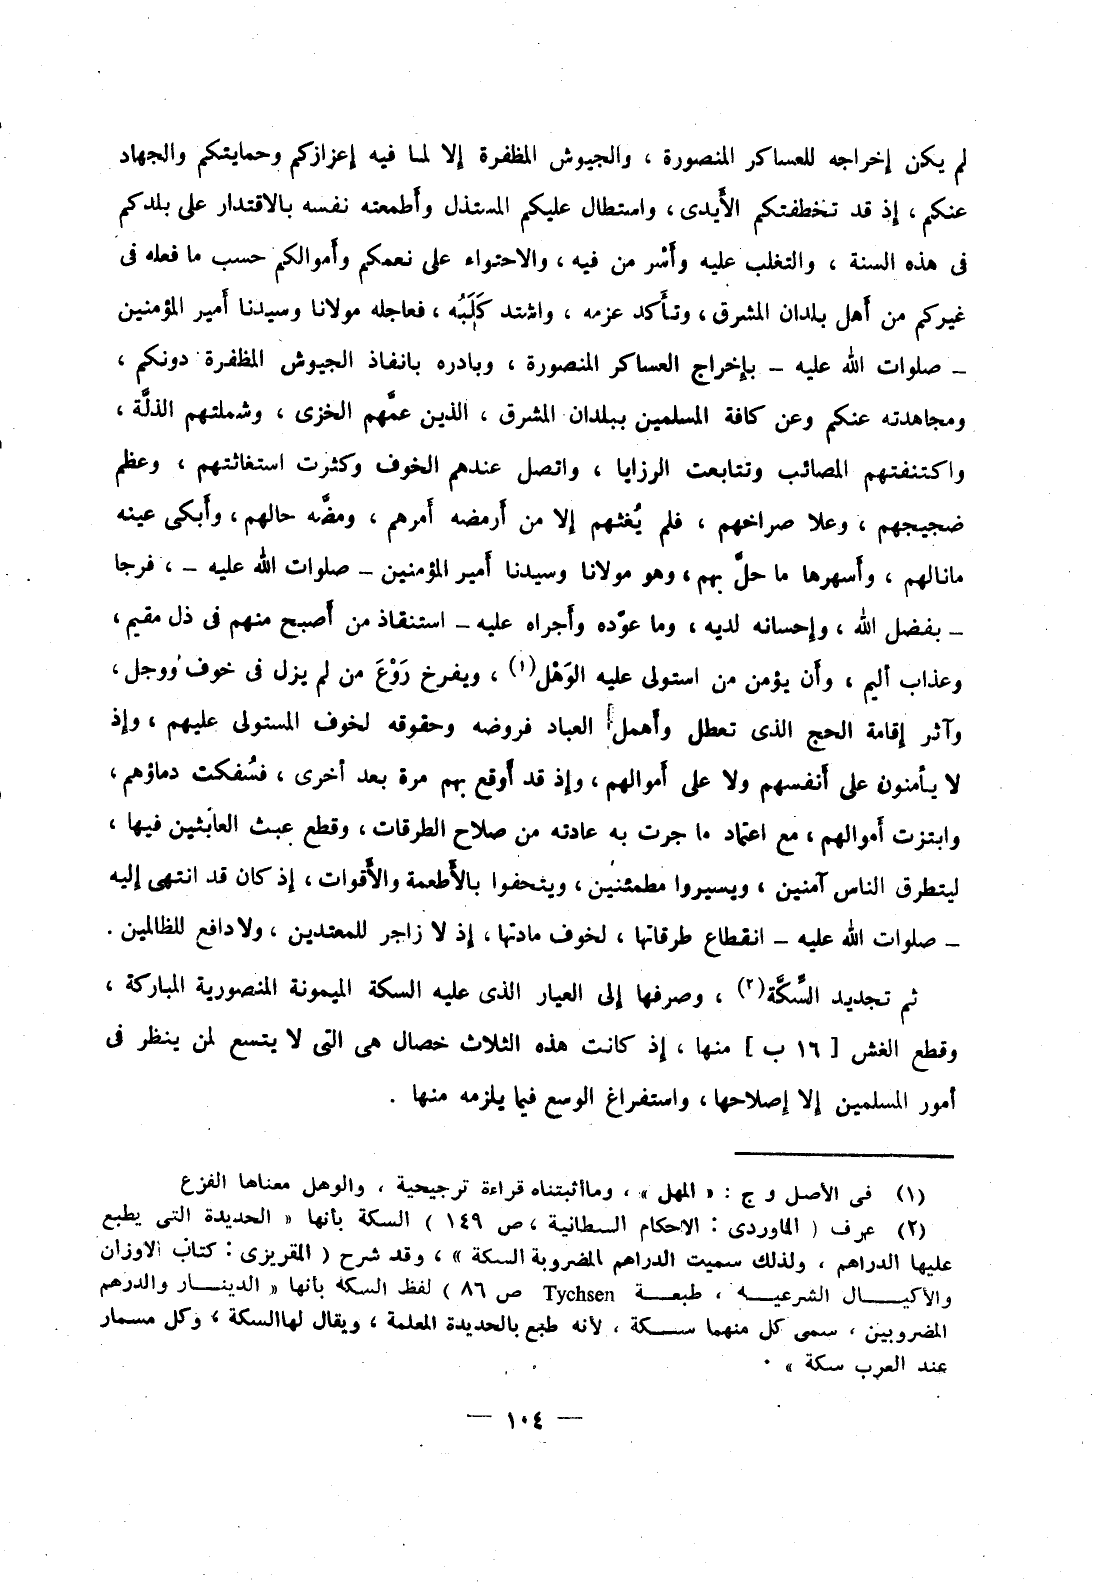 لم يكن إخراجه للعساكر المنصورة ، والجيوش المظفرة إلا لما فيه إعزازكم وحمايتكم والجهاد
عنكم ، إذ قد تخطفتكم الأيدى ، واستطال عليكم المستذل وأطمعته نفسه بالاقتدار على بلدكم
فى هذه السنة ، والتغلب عليه وأسْر من فيه ، والاحتواء على نعمكم وأموالكم حسب ما فعله فى
غيركم من أهل بلدان المشرق ، وتأكد عزمه ، واشتد كَلَبُه ، فعاجله مولانا وسيدنا أمير المؤمنين
ــ صلوات الله عليه ــ بإخراج العساكر المنصورة ، وبادره بانفاذ الجيوش المظفرة دونكم ،
ومجاهدته عنكم وعن كافة المسلمين ببلدان المشرق ، الذين عمَّهم الخزى ، وشملتهم الذلَّة ،
واكتنفتهم المصائب وتتابعت الرزايا ، واتصل عندهم الخوف وكثرت استغاثتهم ، وعظم
ضجيجهم ، وعلا صراخهم ، فلم يُغثهم إلا من أرمضه أمرهم ، ومضَّه حالهم ، وأبكى عينه
مانالهم ، وأسهرها ما حلَّ بهم ، وهو مولانا وسيدنا أمير المؤمنين ــ صلوات الله عليه ــ ، فرجا
ــ بفضل الله ، وإحسانه لديه ، وما عوّده وأجراه عليه ــ استنقاذ من أصبح منهم فى ذل مقيم ،
وعذاب أليم ، وأن يؤمن من استولى عليه الوَهْل(١) ، ويفرخ رَوْعَ من لم يزل فى خوف ووجل ،
وآثر إقامة الحج الذى تعطل وأهمل العباد فروضه وحقوقه لخوف المستولى عليهم ، وإذ
لا يأمنون على أنفسهم ولا على أموالهم ، وإذ قد أوقع بهم مرة بعد أخرى ، فسُفكت دماؤهم ،
وابتزت أموالهم ، مع اعتماد ما جرت به عادته من صلاح الطرقات ، وقطع عبث العابثين فيها ،
ليتطرق الناس آمنين ، ويسيروا مطمئنين ، ويتحفوا بالأطعمة والأقوات ، إذ كان قد انتهى إليه
ــ صلوات الله عليه ــ انقطاع طرقاتها ، لخوف مادتها ، إذ لا زاجر للمعتدين ، ولادافع للظالمين .
ثم تجديد السِّكَّة(٢) ، وصرفها إلى العيار الذى عليه السكة الميمونة المنصورية المباركة ،
وقطع الغش [ ١٦ ب ] منها ، إذ كانت هذه الثلاث خصال هى التى لا يتسع لمن ينظر فى
أمور المسلمين إلا إصلاحها ، واستفراغ الوسع فيما يلزمه منها .
(١) فى الأصل و ج : « المهل » ، وماأثبتناه قراءة ترجيحية ، والوهل معناها الفزع
(٢) عرف ( الماوردى : الاحكام السلطانية ، ص ١٤٩ ) السكة بأنها « الحديدة التى يطبع
عليها الدراهم ، ولذلك سميت الدراهم المضروبة السكة » ، وقد شرح ( المقريزى : كتاب الاوزان
والأكيـــال الشرعيـــه ، طبعـــة Tychsen ص ٨٦ ) لفظ السكة بأنها « الدينـــار والدرهم
المضروبين ، سمى كل منهما ســـكة ، لأنه طبع بالحديدة المعلمة ، ويقال لهاالسكة ، وكل مسمار
عند العرب سكة » ٠
— ١٠٤ —